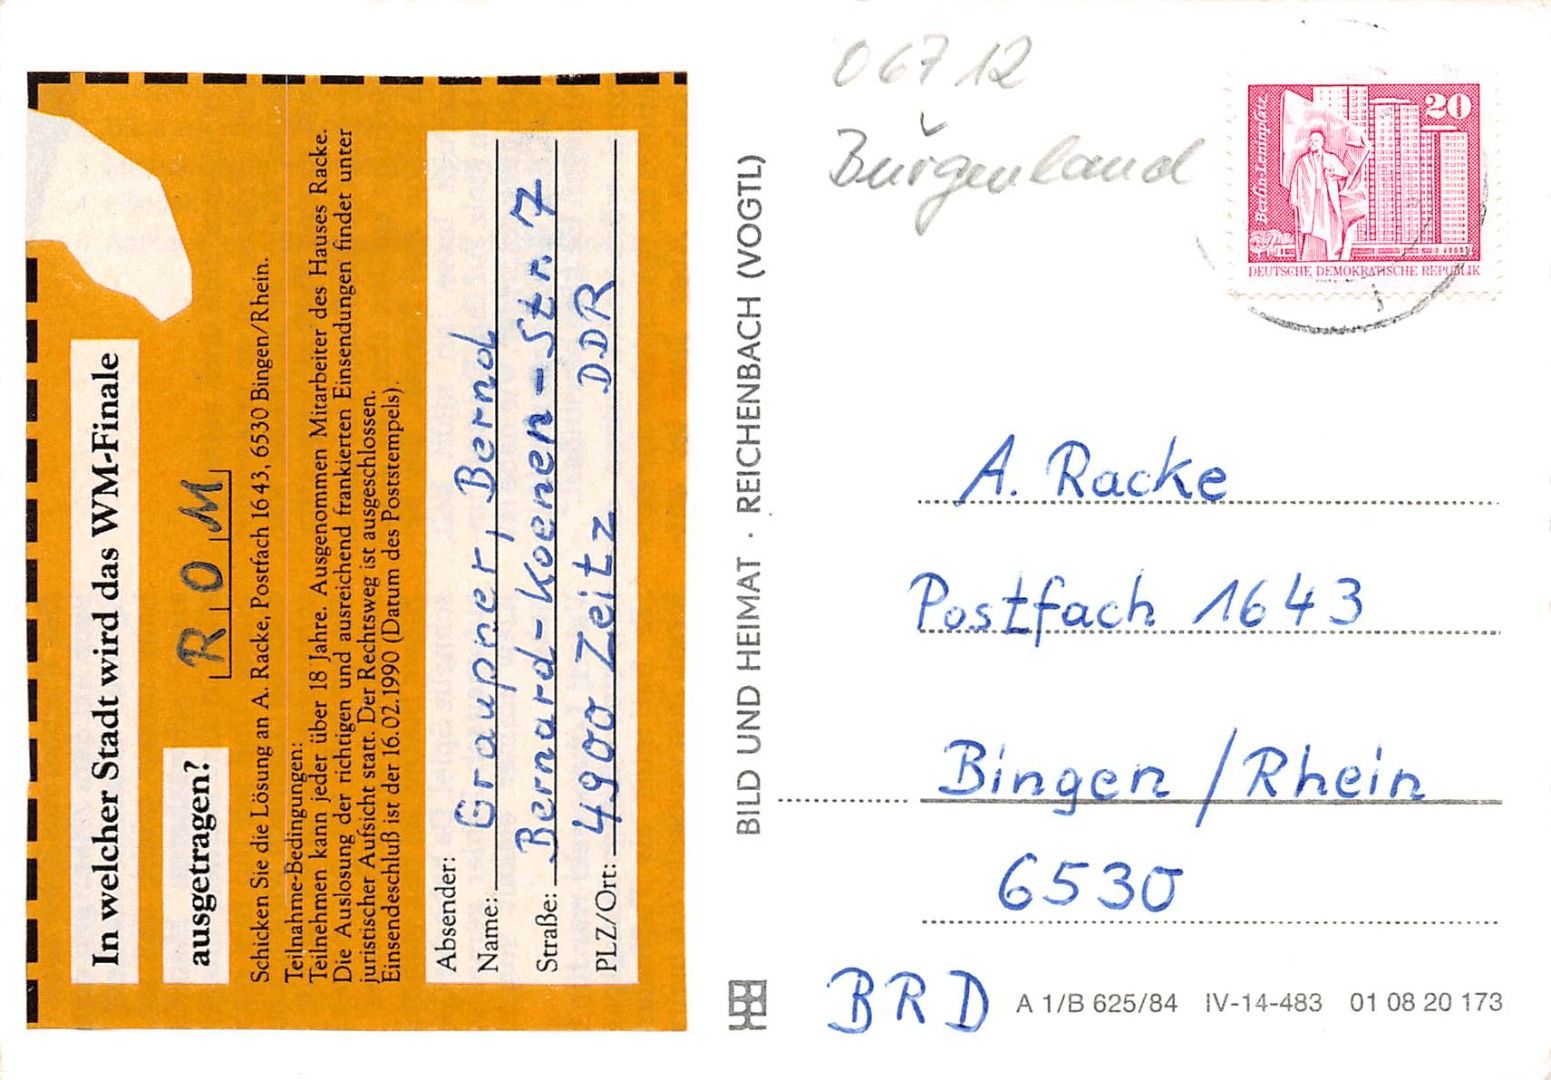 In welcher Stadt wird das WM-Finale
ausgetragen?
R O M
Schicken Sie die Lösung an A. Racke, Postfach 1643, 6530 Bingen/Rhein.
Teilnahme-Bedingungen:
Teilnehmen kann jeder über 18 Jahre. Ausgenommen Mitarbeiter des Hauses Racke.
Die Auslosung der richtigen und ausreichend frankierten Einsendungen findet unter
juristischer Aufsicht statt. Der Rechtsweg ist ausgeschlossen.
Einsendeschluß ist der 16.02.1990 (Datum des Poststempels).
Absender:
Name: Graupner, Bernd
Straße: Bernard-Koenen-Str. 7
PLZ/Ort: 4900 Zeitz DDR
BILD UND HEIMAT · REICHENBACH (VOGTL)
06712
Burgenland
Berlin-Leninplatz
20
DEUTSCHE DEMOKRATISCHE REPUBLIK
A. Racke
Postfach 1643
Bingen/Rhein
6530
BRD
A 1/B 625/84 IV-14-483 01 08 20 173